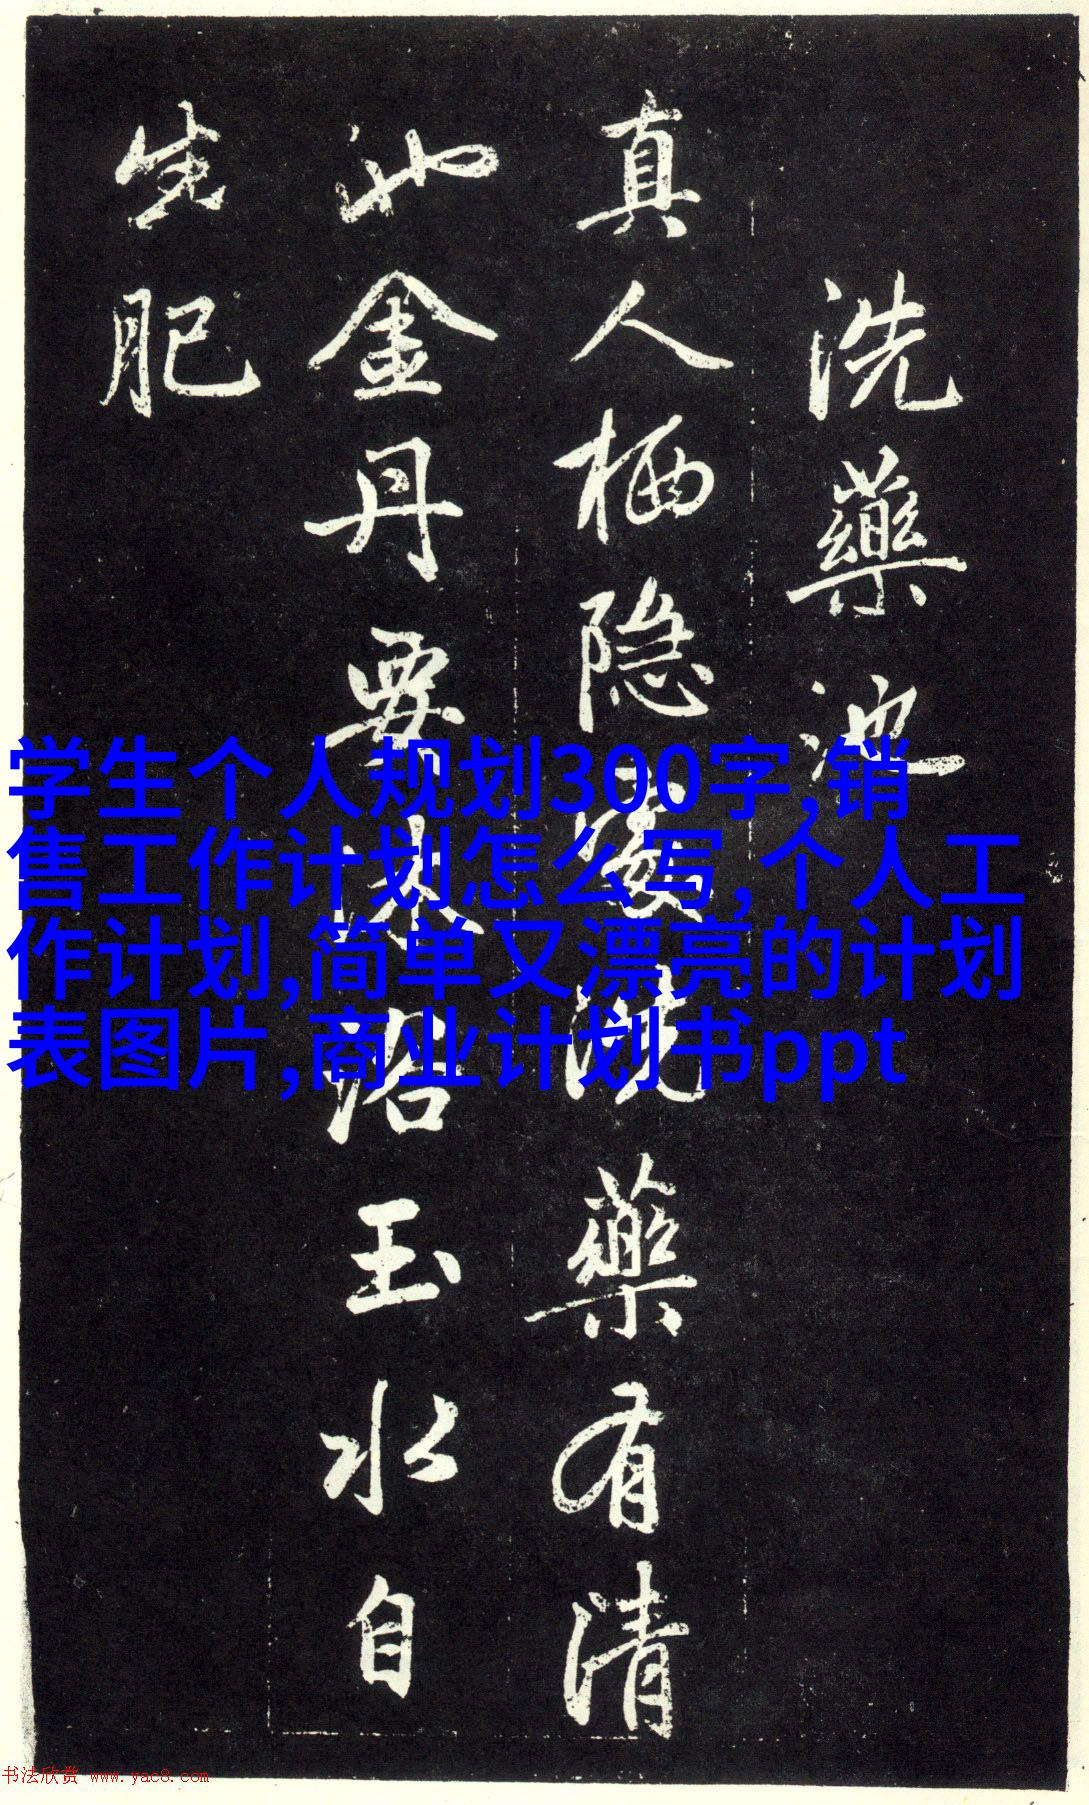 洗藥池
真人栖隐處洗藥有清
池金丹要沐浴玉水自
生肥
学生个人规划300字,销
售工作计划怎么写,个人工
作计划,简单又漂亮的计划
表图片,商业计划书ppt
书法欣赏 www.yac8.com